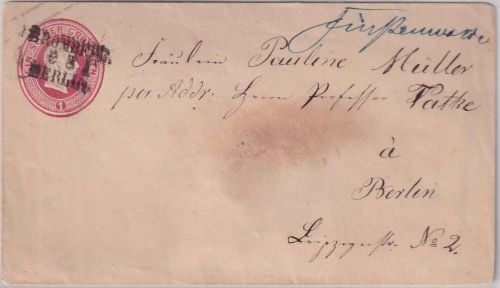 Fürstenwalde
Fräulein Pauline Müller
per Addr. Herrn Professor Pathe
à
Berlin
Leipzigerstr. No 2.
BERLIN
1